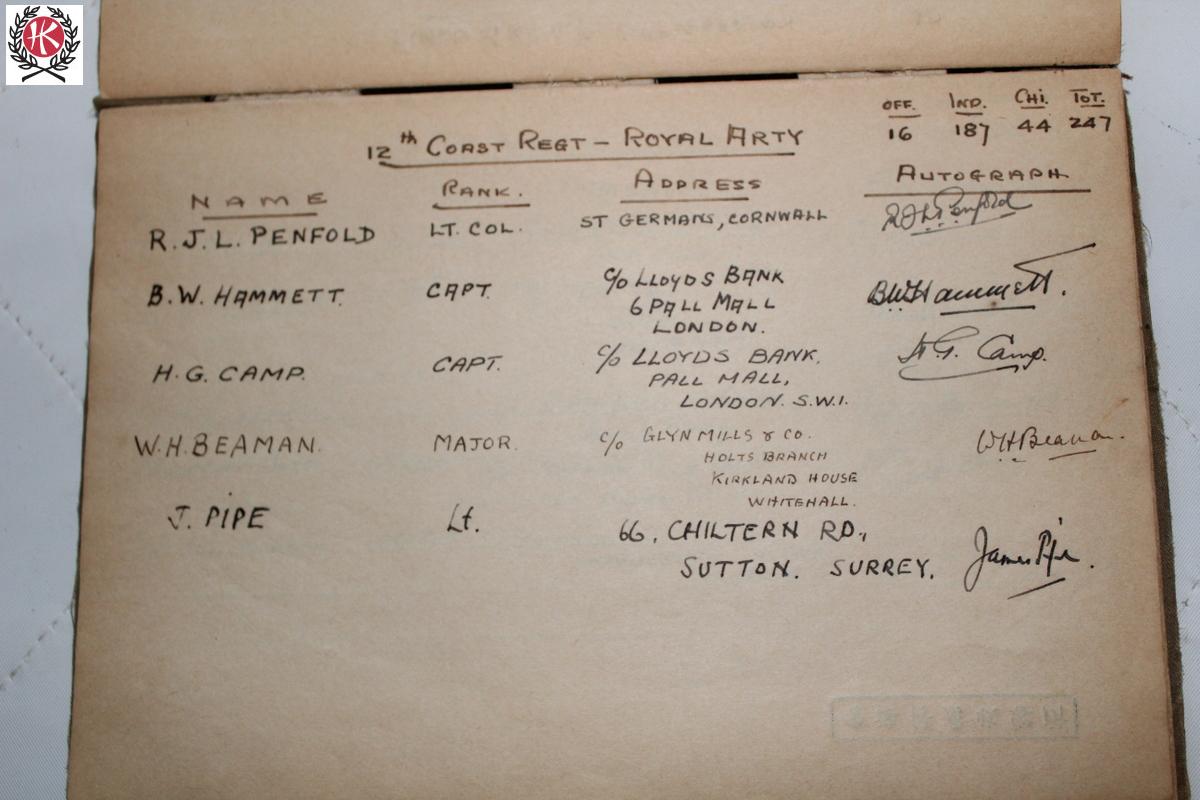 HK
OFF. IND. CHI. TOT.
16 187 44 247
12th COAST REGT - ROYAL ARTY
NAME RANK. ADDRESS AUTOGRAPH
R.J.L. PENFOLD LT. COL. ST GERMANS, CORNWALL RJL Penfold
B.W. HAMMETT. CAPT. C/O LLOYDS BANK BW Hammett.
6 PALL MALL
LONDON.
H.G. CAMP. CAPT. C/O LLOYDS BANK. H.G. Camp.
PALL MALL,
LONDON. S.W.1.
W.H. BEAMAN. MAJOR. C/O GLYN MILLS & CO. WHBeaman.
HOLTS BRANCH
KIRKLAND HOUSE
WHITEHALL.
J. PIPE Lt. 66, CHILTERN RD., James Pipe.
SUTTON. SURREY.